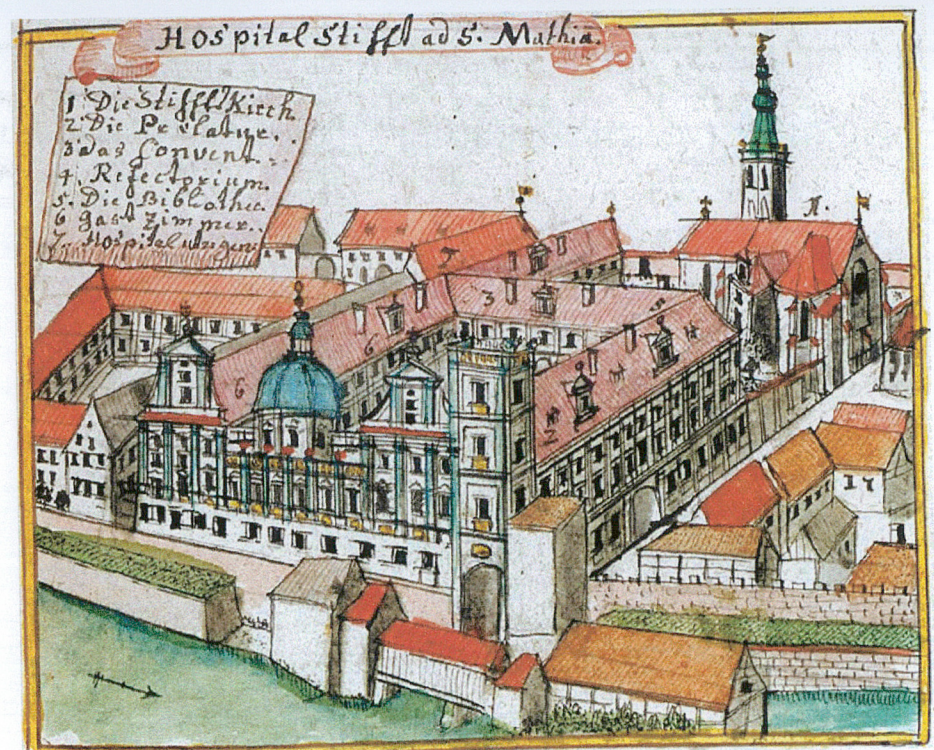 Hospital Stifft ad S. Mathia.
1 Die Stifft Kirch
2 Die Prelatur.
3 das Convent.
4. Refectorium.
5. Die Bibliothec.
6 gast Zimmer.
7. Hospital
1.
7
3
5
4
6
6
2